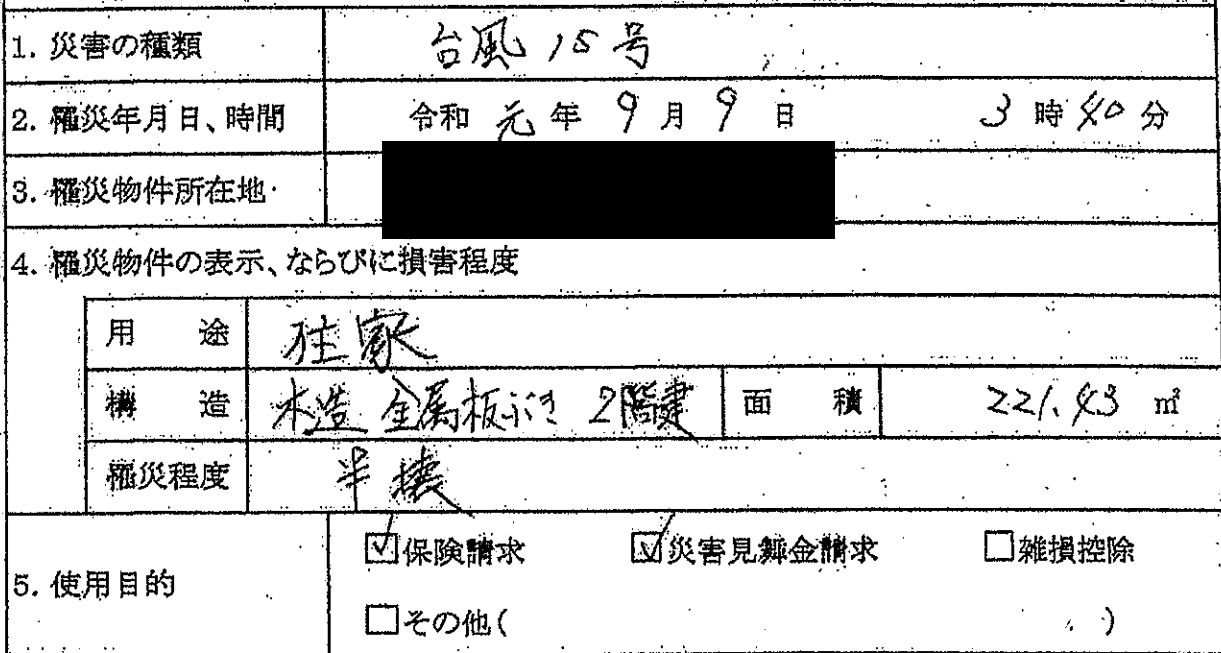 1. 災害の種類 台風 15号
2. 罹災年月日、時間 令和 元 年 9 月 9 日 3 時 40 分
3. 罹災物件所在地
4. 罹災物件の表示、ならびに損害程度
用 途 住家
構 造 木造 金属板ぶき 2階建 面 積 221.43 ㎡
罹災程度 半壊
5. 使用目的 ☑保険請求 ☑災害見舞金請求 □雑損控除
□その他( )